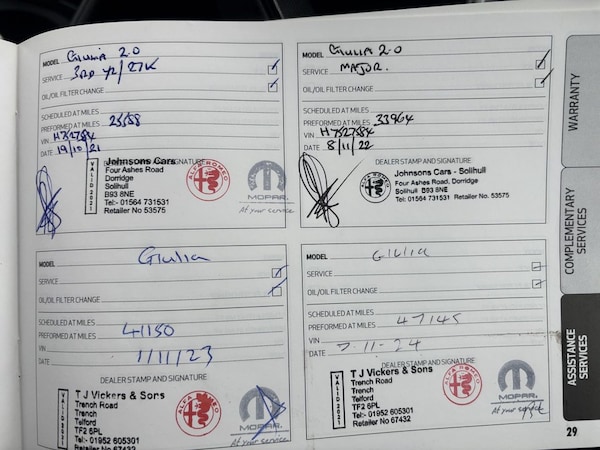 MODEL GIULIA 2.0
SERVICE 3RD YR/27K
OIL/OIL FILTER CHANGE
SCHEDULED AT MILES
PREFORMED AT MILES 25568
VIN H7527584
DATE 19/10/21
DEALER STAMP AND SIGNATURE
VALID 2021
Johnsons Cars
Four Ashes Road
Dorridge
Solihull
B93 8NE
Tel:- 01564 731531
Retailer No 53575
ALFA ROMEO
MOPAR
At your service
MODEL GIULIA 2.0
SERVICE MAJOR.
OIL/OIL FILTER CHANGE
SCHEDULED AT MILES
PREFORMED AT MILES 33964
VIN H7527584
DATE 8/11/22
DEALER STAMP AND SIGNATURE
Johnsons Cars - Solihull
Four Ashes Road, Dorridge
Solihull B93 8NE
Tel: 01564 731531 Retailer No. 53575
MOPAR
At your service
MODEL Giulia
SERVICE
OIL/OIL FILTER CHANGE
SCHEDULED AT MILES
PREFORMED AT MILES 41150
VIN
DATE 1/11/23
DEALER STAMP AND SIGNATURE
VALID 2021
T J Vickers & Sons
Trench Road
Trench
Telford
TF2 6PL
Tel:- 01952 605301
Retailer No 67432
ALFA ROMEO
MOPAR
At your service
MODEL GIULIA
SERVICE
OIL/OIL FILTER CHANGE
SCHEDULED AT MILES
PREFORMED AT MILES 47145
VIN
DATE 7-11-24
DEALER STAMP AND SIGNATURE
VALID 2021
T J Vickers & Sons
Trench Road
Trench
Telford
TF2 6PL
Tel:- 01952 605301
Retailer No 67432
ALFA ROMEO
MOPAR
At your service
WARRANTY
COMPLEMENTARY
SERVICES
ASSISTANCE
SERVICES
29